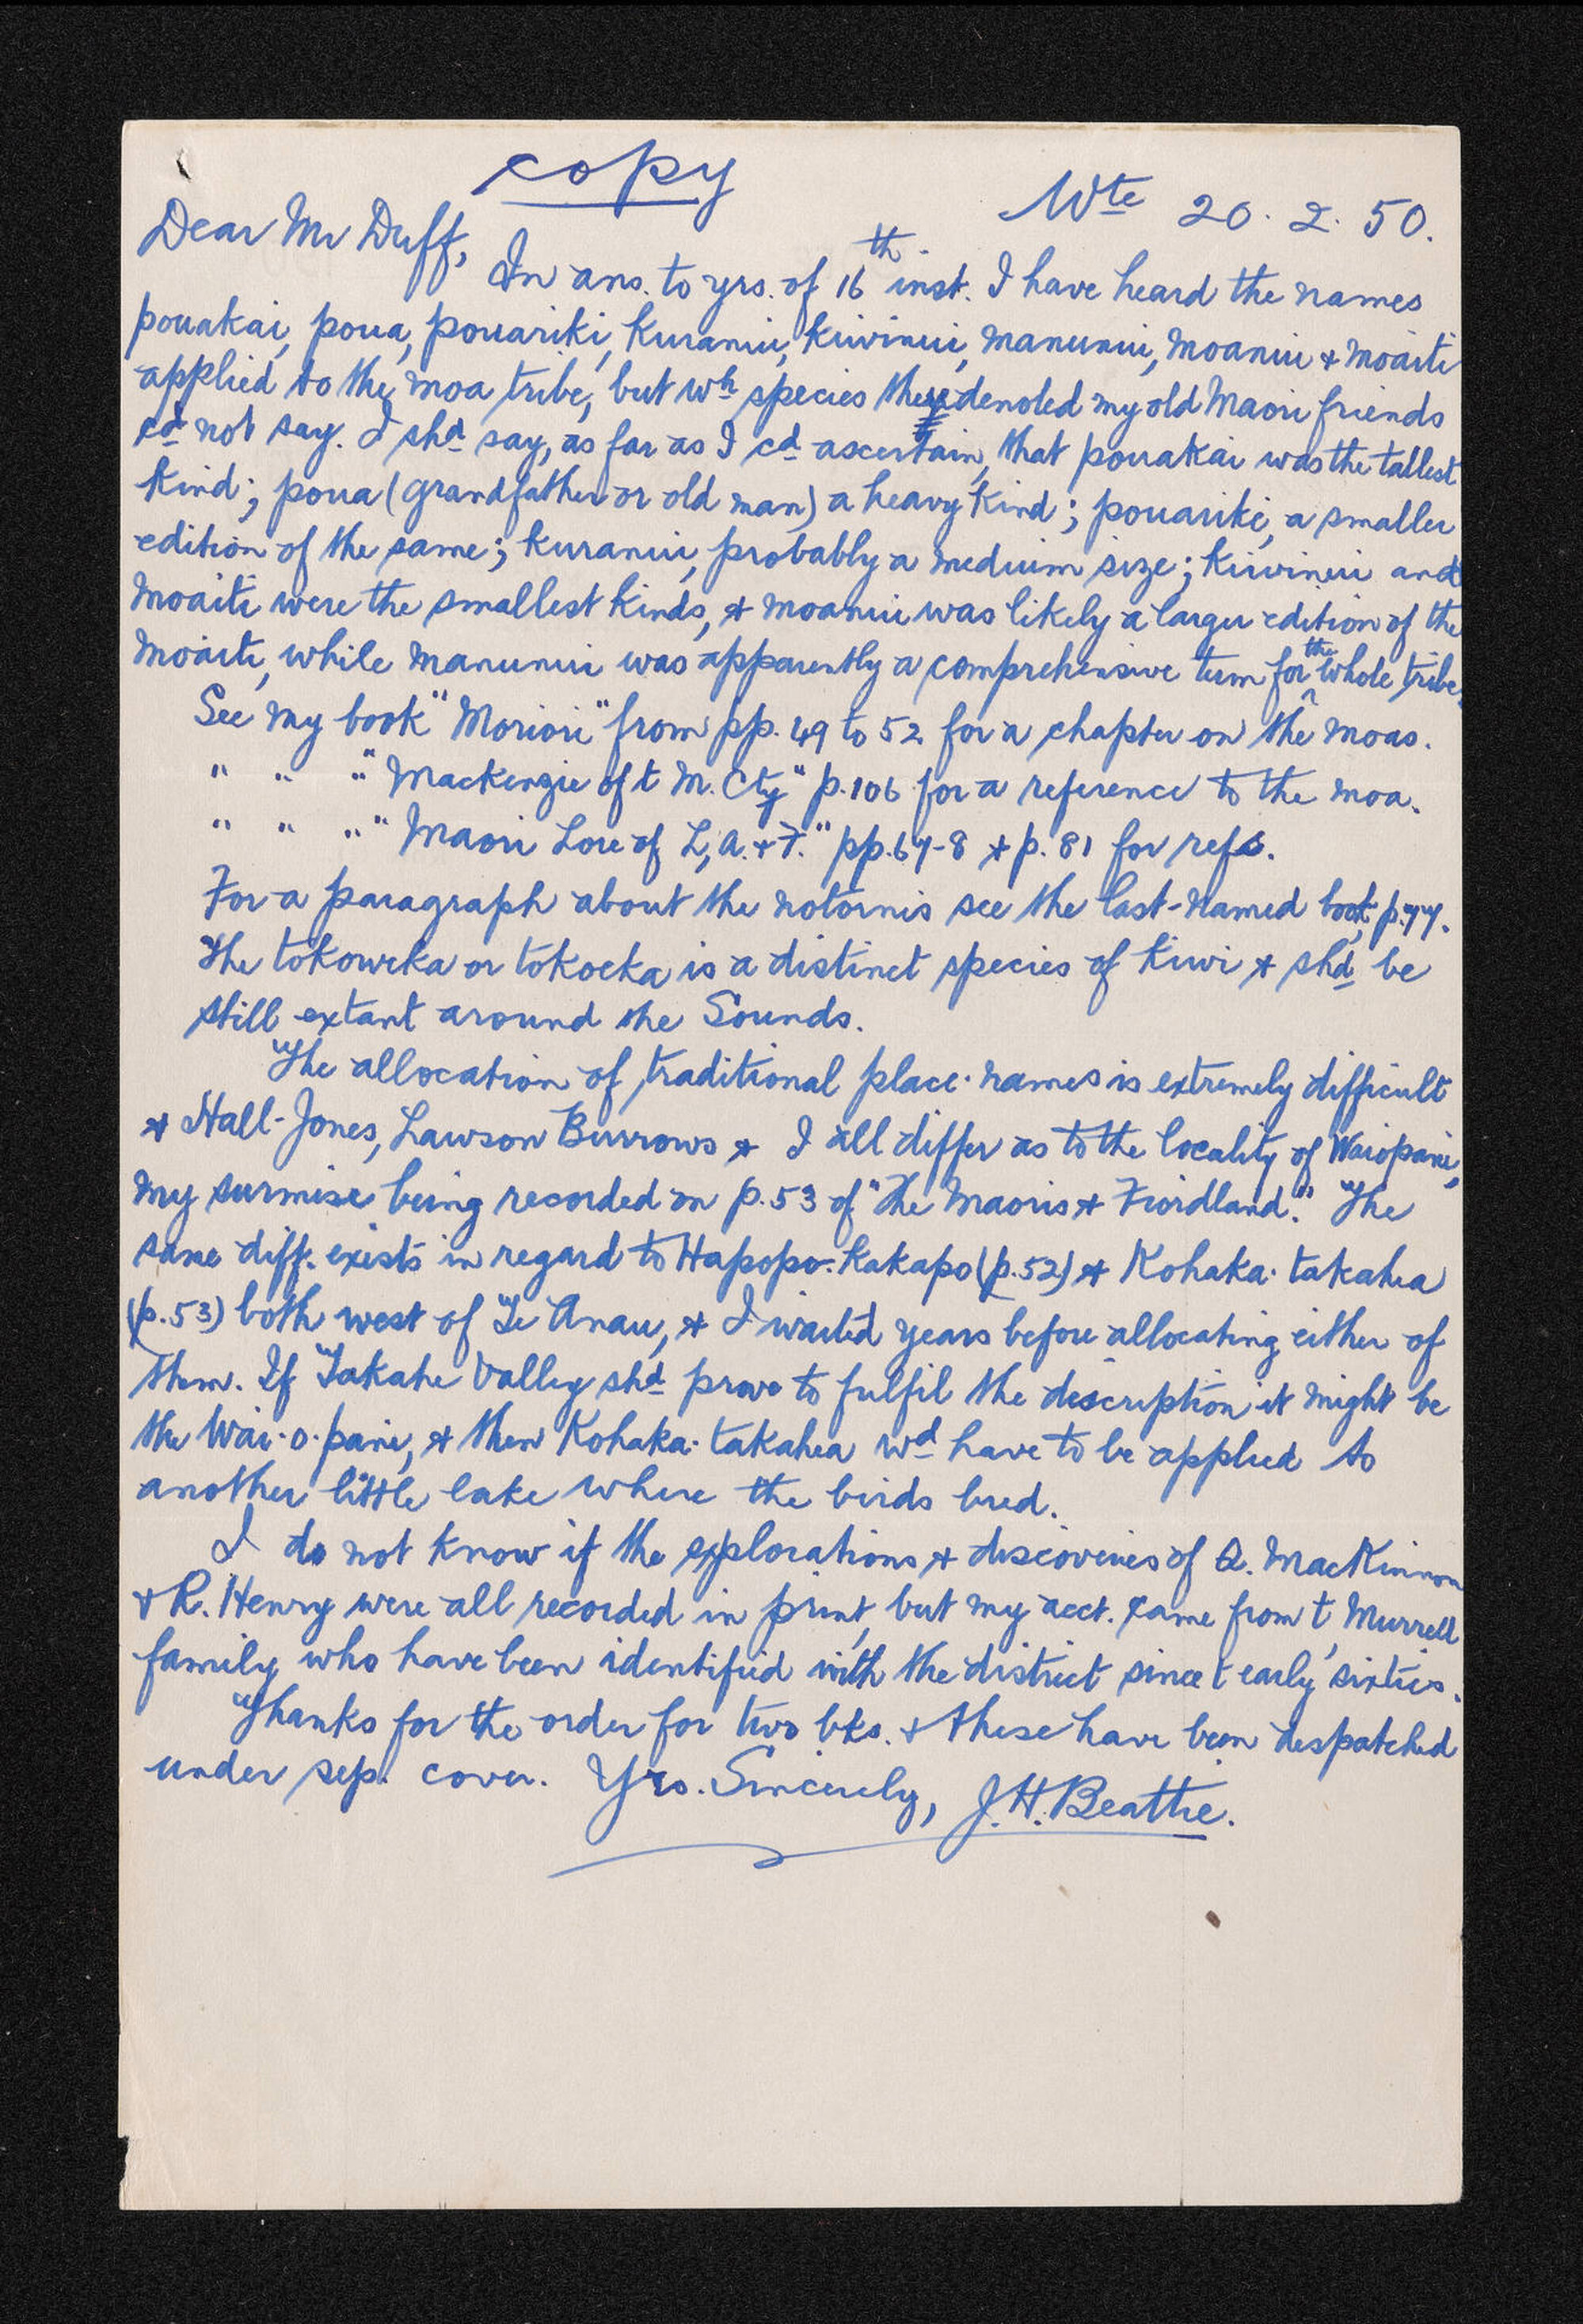 copy
Wte 20. 2. 50.
Dear Mr Duff,
In ans. to yrs. of 16th inst. I have heard the names
pouakai, poua, pouariki, kuranui, kiwinui, manunui, moanui & moaiti
applied to the moa tribe, but wh species they denoted my old Maori friends
cd not say. I shd say, as far as I cd ascertain, that pouakai was the tallest
kind; poua (grandfather or old man) a heavy kind; pouariki, a smaller
edition of the same; kuranui, probably a medium size; kiwinui and
moaiti were the smallest kinds, & moanui was likely a larger edition of the
moaiti, while manunui was apparently a comprehensive term for the whole tribe.
See my book "Moriori" from pp. 49 to 52 for a chapter on the moas.
" " " "Mackenzie of t M. Cty" p. 106 for a reference to the moa.
" " " "Maori Lore of L, A. & F." pp. 67-8 & p. 81 for refs.
For a paragraph about the notornis see the last-named book, p. 77.
The tokoweka or tokoeka is a distinct species of kiwi & shd be
still extant around the Sounds.
The allocation of traditional place-names is extremely difficult
& Hall-Jones, Lawson Burrows & I all differ as to the locality of Waiopani,
my surmise being recorded on p. 53 of "The Maoris & Fiordland." The
same diff. exists in regard to Hapopo-kakapo (p. 52) & Kohaka-takahea
(p. 53) both west of Te Anau, & I waited years before allocating either of
them. If Takahe Valley shd prove to fulfil the description it might be
the Wai-o-pani, & then Kohaka-takahea wd have to be applied to
another little lake where the birds bred.
I do not know if the explorations & discoveries of Q. MacKinnon
& R. Henry were all recorded in print, but my acct. came from t Murrell
family who have been identified with the district since t early sixties.
Thanks for the order for two bks. & these have been despatched
under sep. cover. Yrs. Sincerely, J. H. Beattie.